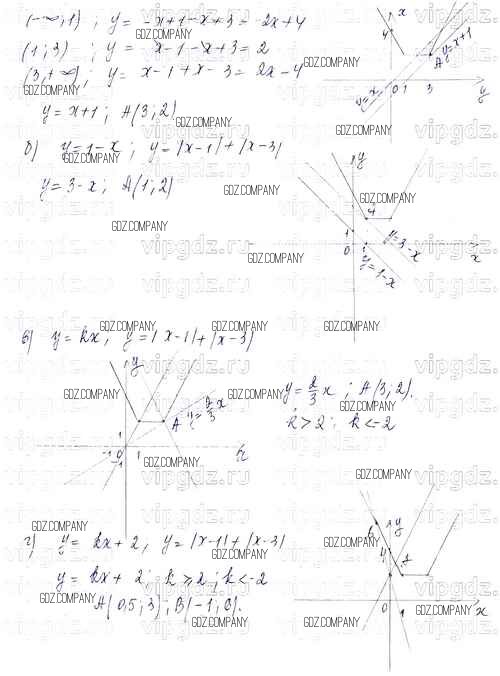 (-∞, 1) ; y = -x+1-x+3 = -2x+4
(1; 3) ; y = x-1-x+3 = 2
(3, +∞) ; y = x-1+x-3 = 2x-4
y = x+1 ; A(3; 2)
б) y = 1-x ; y = |x-1| + |x-3|
y = 3-x ; A(1; 2)
y = x+1
A
y
0 1 3
4
x
y
4
1
0
1
y=3-x
y=1-x
x
в) y = kx, y = |x-1| + |x-3|
y = 2/3 x ; A(3; 2).
k > 2 ; k < -2
y
A
y = 2/3 x
1
-1 0 1
-1
г) y = kx + 2, y = |x-1| + |x-3|
y = kx + 2 ; k ≥ 2 ; k < -2
A(0,5; 3) ; B(-1; 6).
B
y
4
A
0
1
x
GDZ.COMPANY
vipgdz.ru